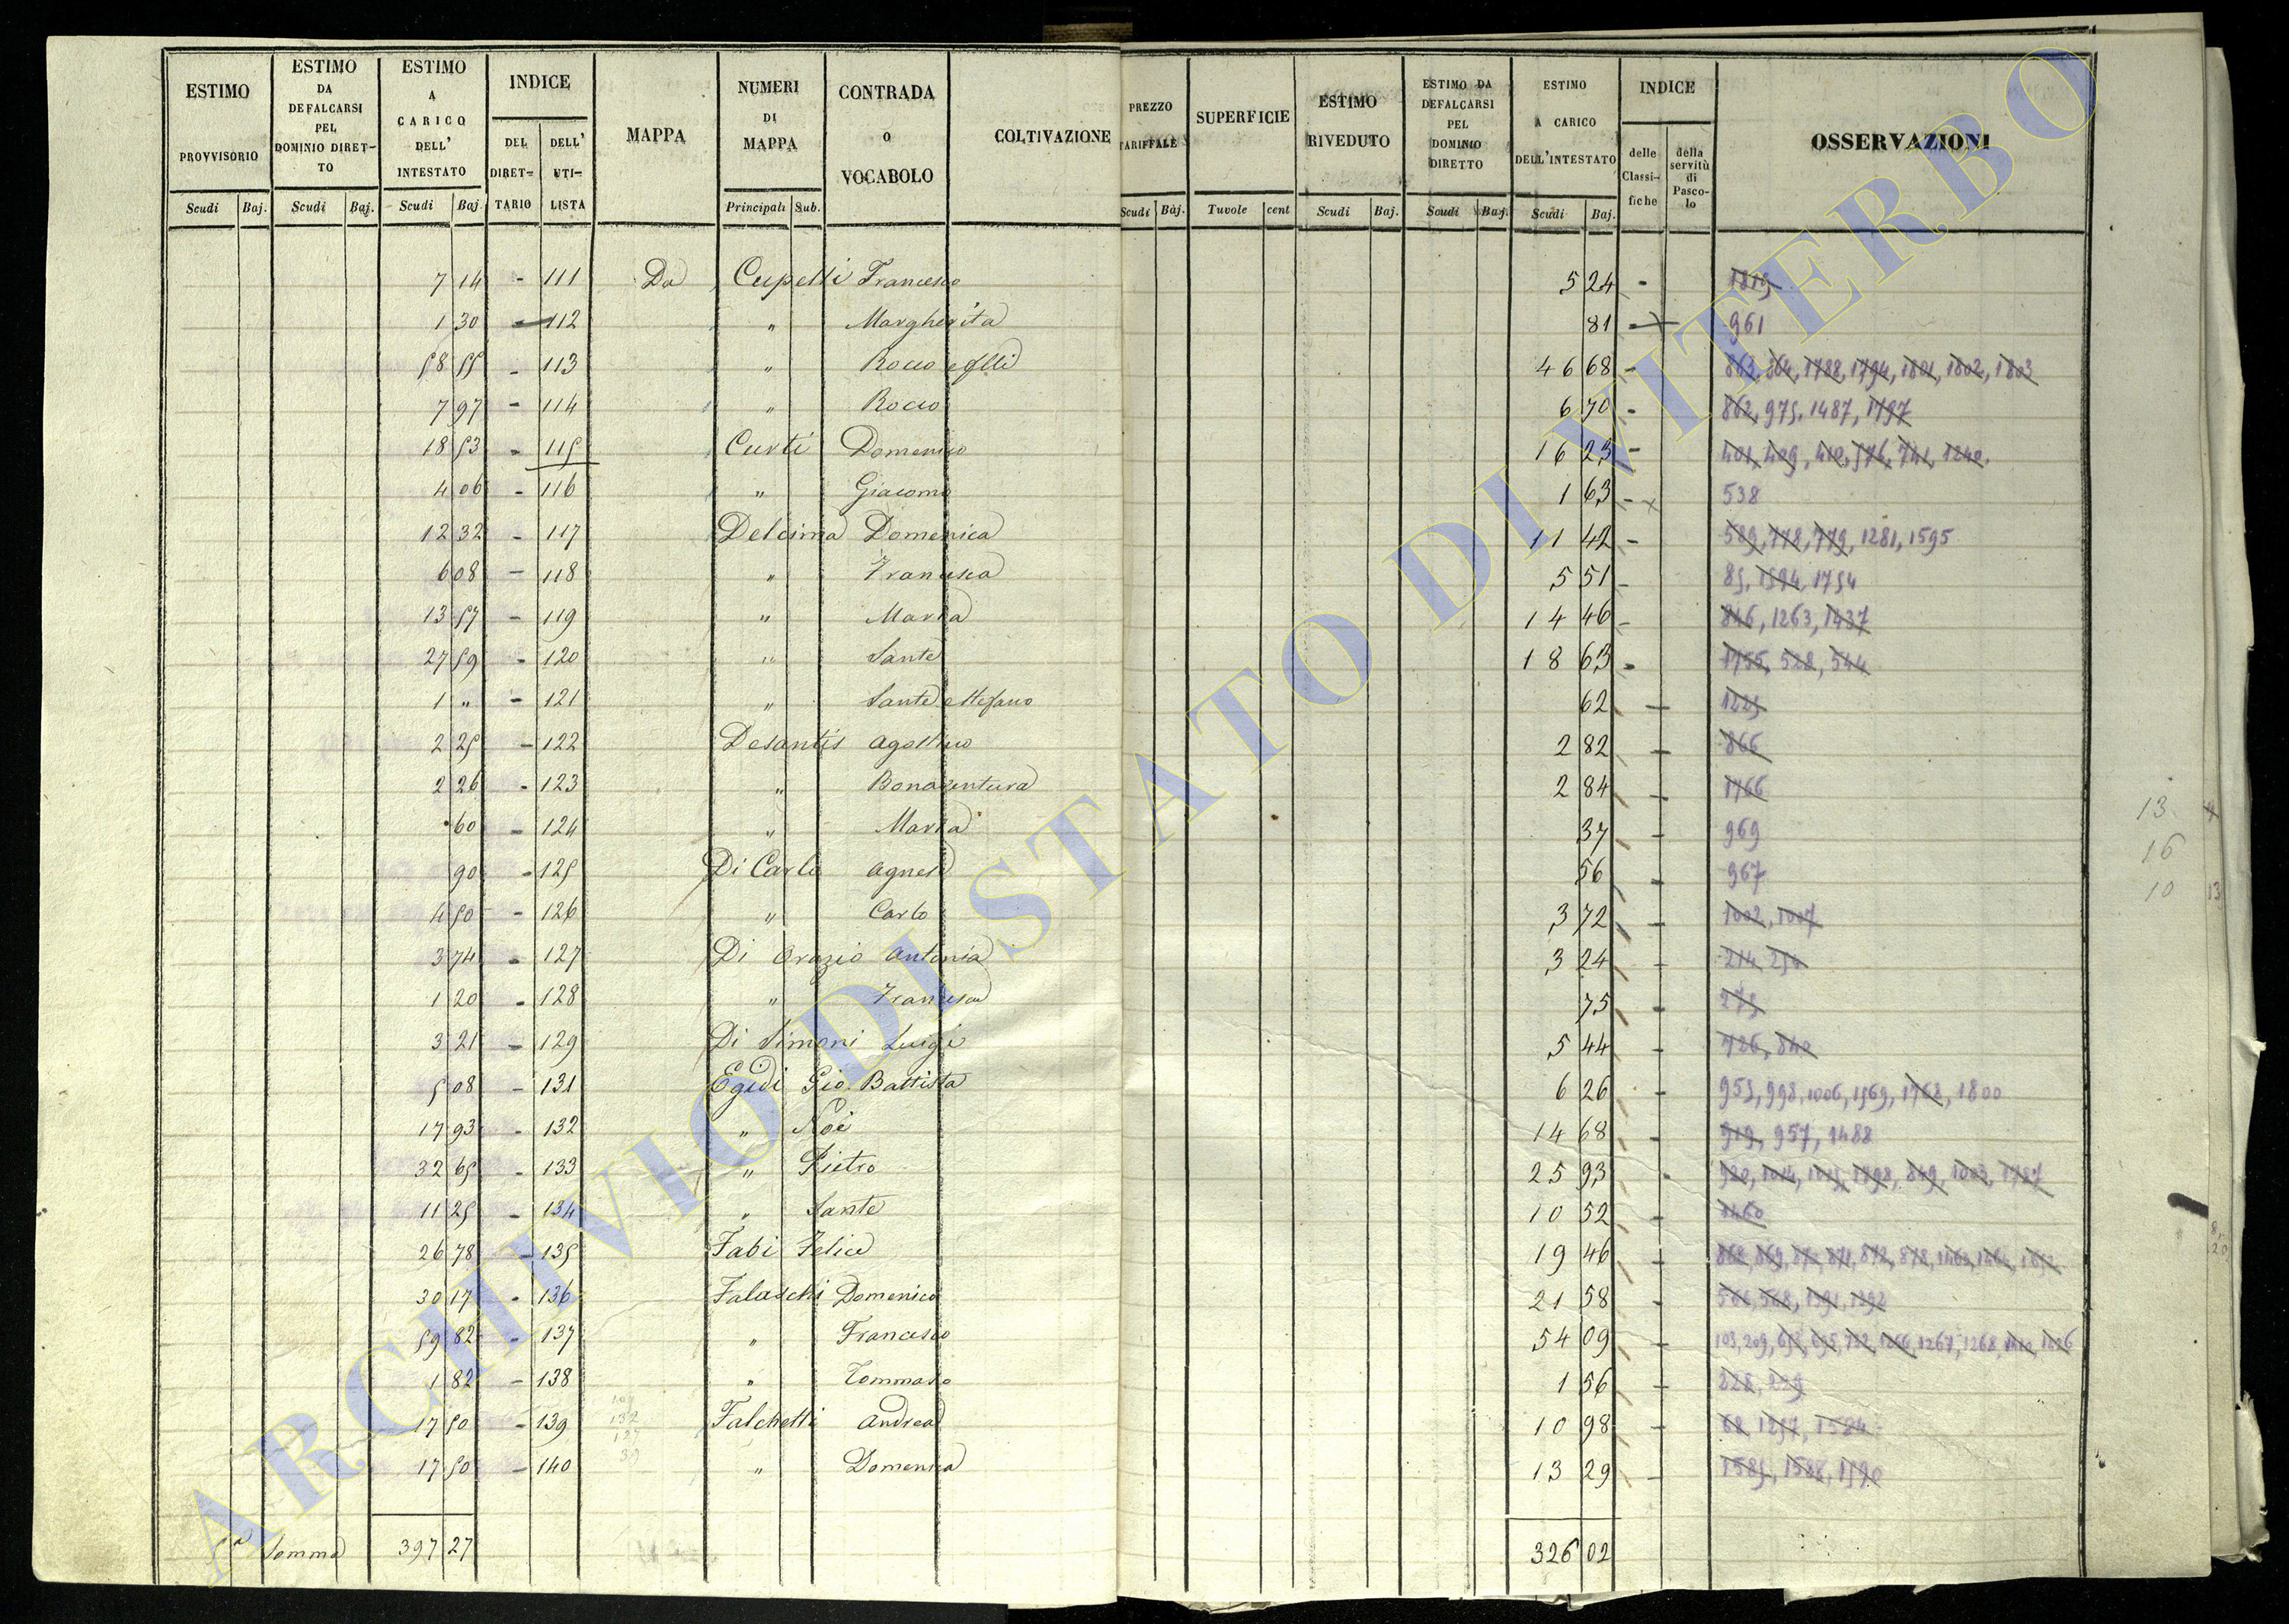 ESTIMO PROVVISORIO Scudi Baj.
ESTIMO DA DEFALCARSI PEL DOMINIO DIRET-TO Scudi Baj.
ESTIMO A CARICO DELL' INTESTATO Scudi Baj
INDICE
DEL DIRET-TARIO
DELL' UTI-LISTA
MAPPA
NUMERI DI MAPPA Principali Sub.
CONTRADA o VOCABOLO
COLTIVAZIONE
PREZZO TARIFFALE Scudi Baj.
SUPERFICIE Tavole cent
ESTIMO RIVEDUTO Scudi Baj.
ESTIMO DA DEFALCARSI PEL DOMINIO DIRETTO Scudi Baj.
ESTIMO A CARICO DELL'INTESTATO Scudi Baj.
INDICE
delle Classi-fiche
della servitù di Pasco-lo
OSSERVAZIONI
7 14 - 111 Da Cupelli Francesco 5 24 - 1819
1 30 - 112 " Margherita 81 - 961
58 55 - 113 " Rocco e flli 46 68 - 863, 864, 1788, 1794, 1801, 1802, 1803
7 97 - 114 " Rocco 6 70 - 862, 975, 1487, 1797
18 53 - 115 Curti Domenico 16 23 - 401, 409, 410, 576, 741, 1240.
4 06 - 116 " Giacomo 1 63 - x 538
12 32 - 117 Delcima Domenica 11 42 - 589, 778, 779, 1281, 1595
6 08 - 118 " Francesca 5 51 - 85, 1594, 1754
13 57 - 119 " Maria 14 46 - 846, 1263, 1437
27 59 - 120 " Sante 18 63 - 1755, 528, 544
1 " - 121 " Sante e Stefano 62 - 1225
2 25 - 122 Desantis Agostino 2 82 - 866
2 26 - 123 " Bonaventura 2 84 - 1766
60 - 124 " Maria 37 - 969
90 - 125 Di Carlo Agnese 56 - 967
4 50 - 126 " Carlo 3 72 - 1002, 1007
3 74 - 127 Di Orazio Antonia 3 24 - 214, 254
1 20 - 128 " Francesca 75 - 275
3 21 - 129 Di Simoni Luigi 5 44 - 726, 840
5 08 - 131 Egidi Gio. Battista 6 26 - 955, 998, 1006, 1569, 1768, 1800
17 93 - 132 " Noè 14 68 - 919, 957, 1488
32 65 - 133 " Pietro 25 93 - 920, 1014, 1015, 1798, 849, 1003, 1787
11 25 - 134 " Sante 10 52 - 1460
26 78 - 135 Fabi Felice 19 46 - 868, 869, 871, 872, 878
30 17 - 136 Falaschi Domenico 21 58 - 568, 1391, 1392
59 82 - 137 " Francesco 54 09 - 103, 209, 695, 722, 1266, 1267, 1268
1 82 - 138 " Tommaso 1 56 - 828, 829
17 50 - 139 Falchetti Andrea 10 98 - 68, 1257, 1584
17 50 - 140 " Domenica 13 29 - 1585, 1588, 1590
5a Somma 397 27 326 02
13
16
10 13
ARCHIVIO DI STATO DI VITERBO